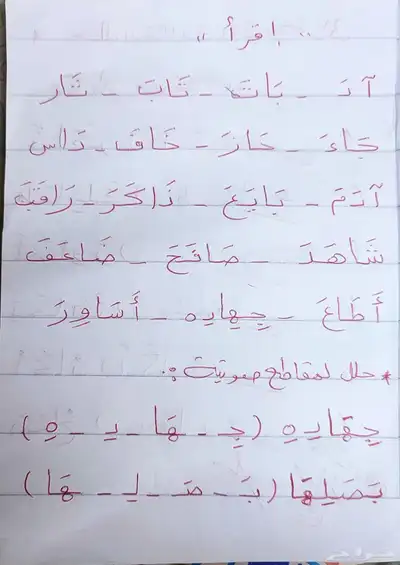 "اقرأ"
آدَ - بَاتَ - تَابَ - ثَار
جَاءَ - حَازَ - خَافَ - دَاسَ
آدَمَ - بَايَعَ - ذَاكَرَ - رَاقَبَ
شَاهَدَ - صَافَحَ - ضَاعَفَ
أَطَاعَ - جِهِادِه - أَسَاوِرَ
* حلل لمقاطع صوتية :.
جِهَادِهِ (جِـ - هَا - دِ - هِ)
بَصَلِهَا (بَـ - صَـ - لِـ - هَا)